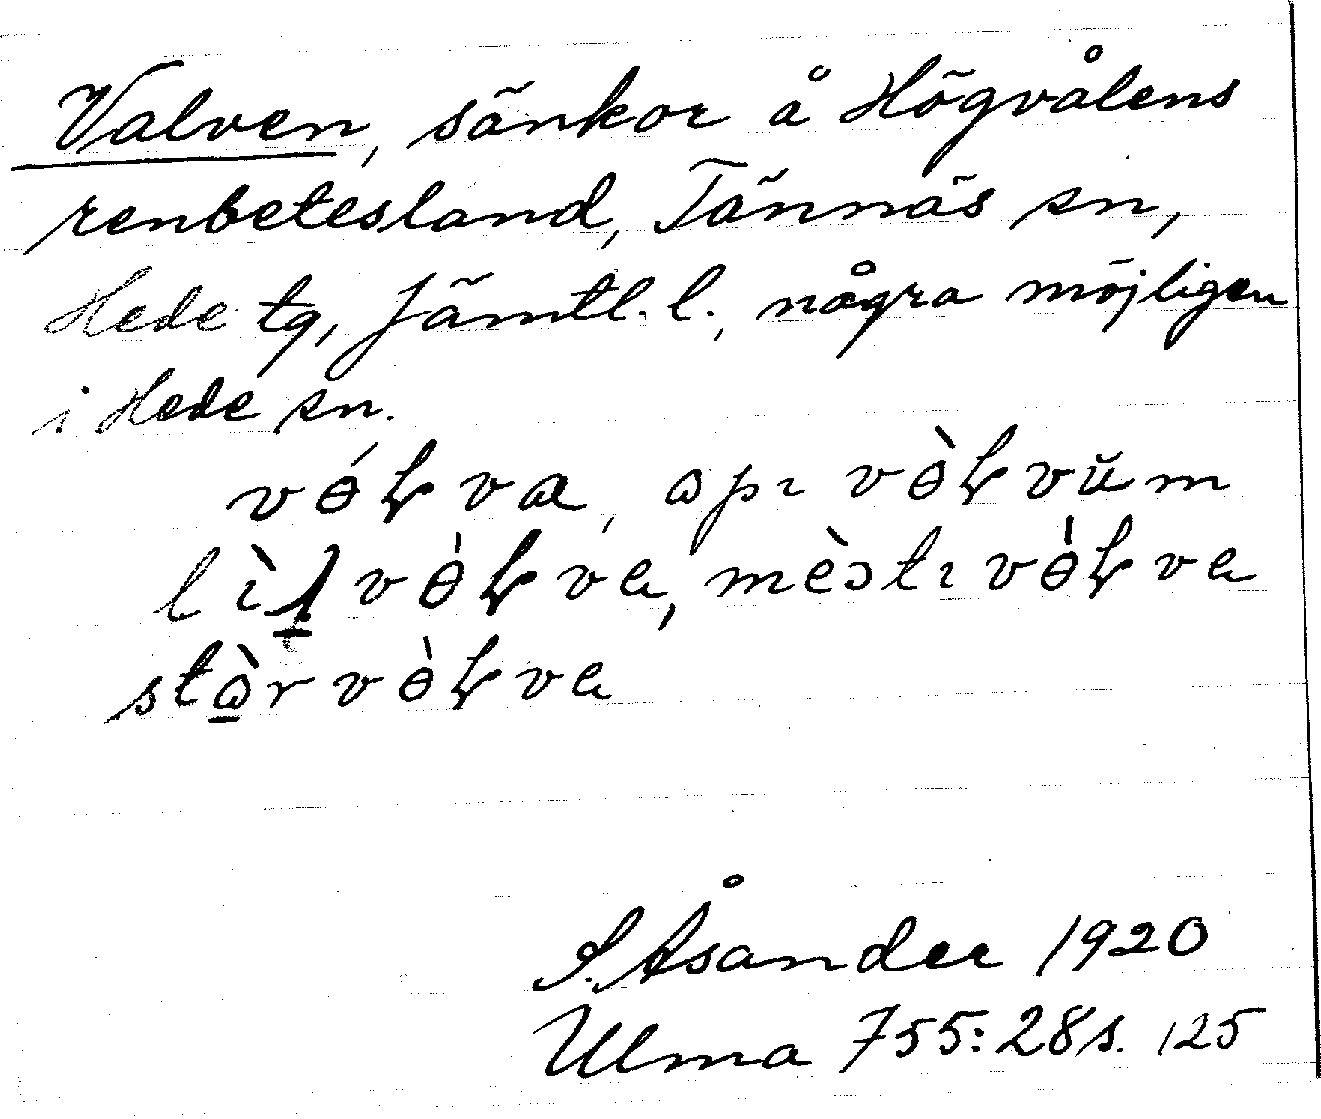 Valven, sänkor å Högvålens
renbetesland, Tännäs sn,
Hede tg, Jämtl. l., några möjligen
i Hede sn.
vɵ́ꝲva, ɷpı vɵ̀ꝲvŭm
vɵ̀ꝲva, vɵ̀ꝲva
stɷ̱̀rvɵ̀ꝲva
S. Åsander 1920
Ulma 755:28 s. 125